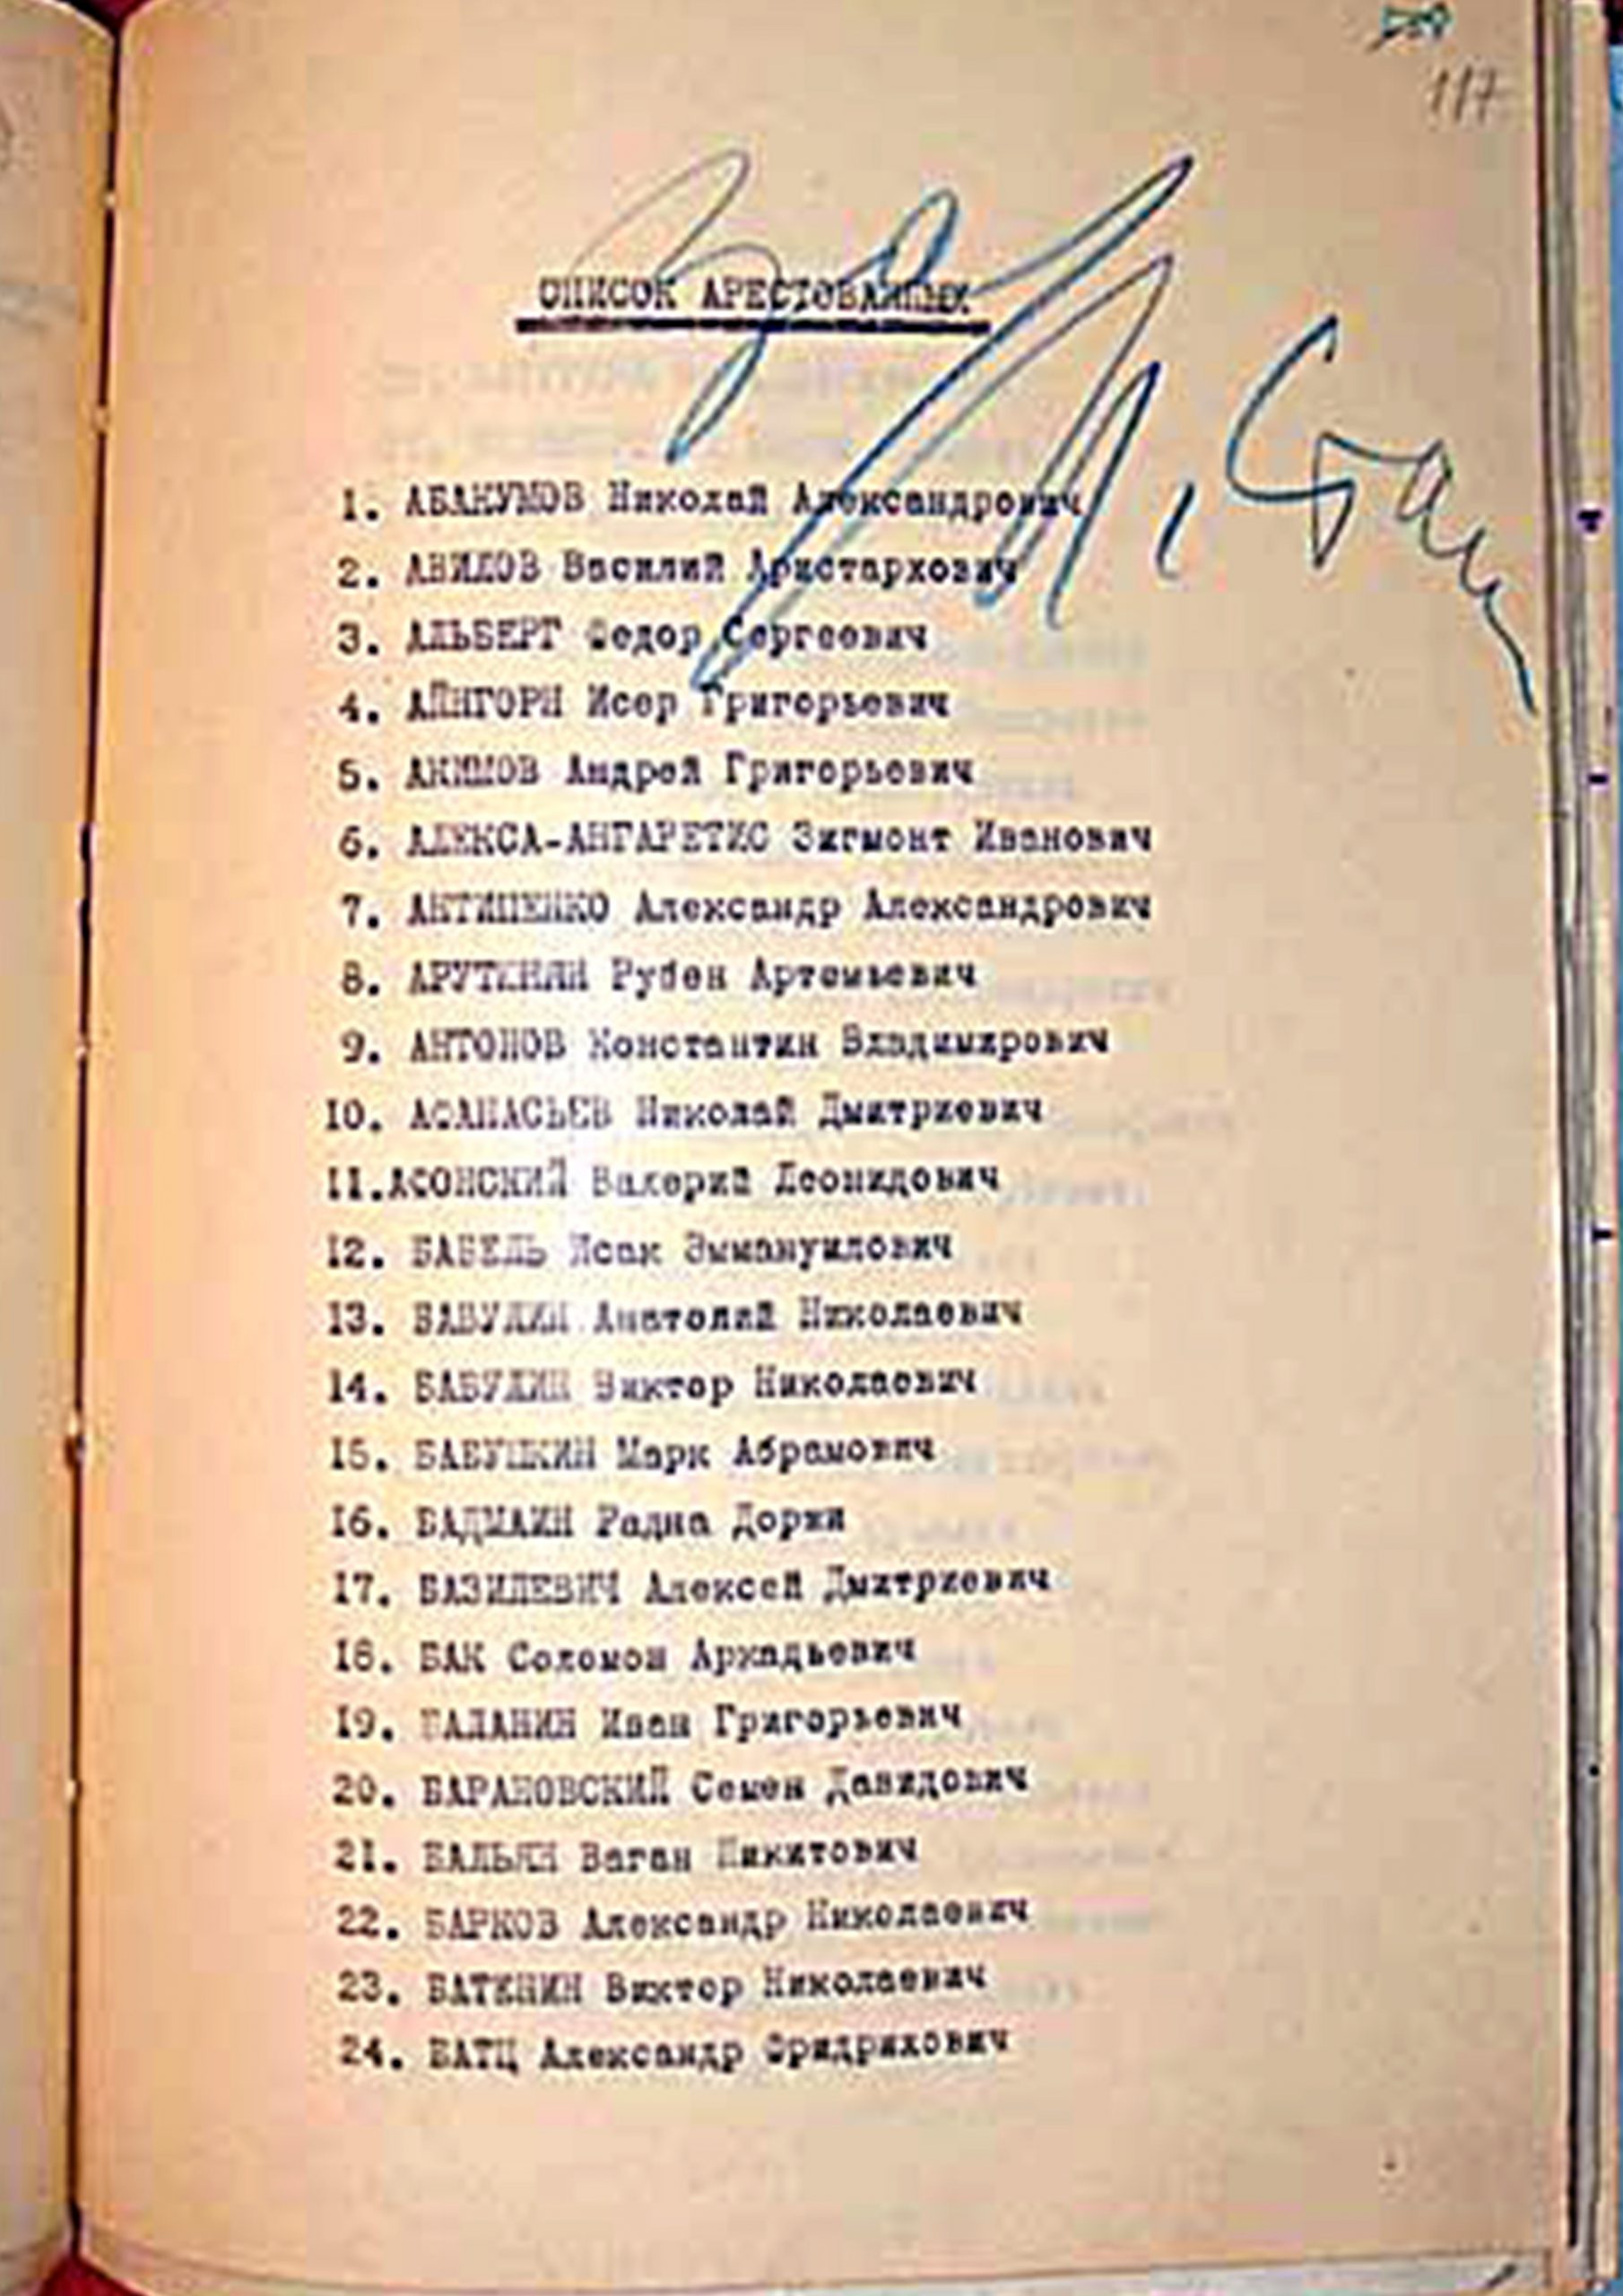 117
За
И. Сталин
СПИСОК АРЕСТОВАННЫХ
1. АБАКУМОВ Николай Александрович
2. АВИЛОВ Василий Аристархович
3. АЛЬБЕРТ Федор Сергеевич
4. АЙНГОРН Исер Григорьевич
5. АКИМОВ Андрей Григорьевич
6. АЛЕКСА-АНГАРЕТИС Зигмонт Иванович
7. АНТИПЕНКО Александр Александрович
8. Рубен Артемьевич
9. АНТОНОВ Константин Владимирович
10. АФАНАСЬЕВ Николай Дмитриевич
11. Валерий Леонидович
12. БАБЕЛЬ Исак Эммануилович
13. БАБУЛИН Анатолий Николаевич
14. БАБУЛИН Виктор Николаевич
15. БАБУШКИН Марк Абрамович
16. БАДМАИН Радна Доржи
17. БАЗИЛЕВИЧ Алексей Дмитриевич
18. БАК Соломон Аркадьевич
19. БАЛАНИН Иван Григорьевич
20. БАРАНОВСКИЙ Семен Давидович
21. БАЛЬЯН Ваган Никитович
22. БАРКОВ Александр Николаевич
23. Виктор Николаевич
24. БАТЦ Александр Фридрихович